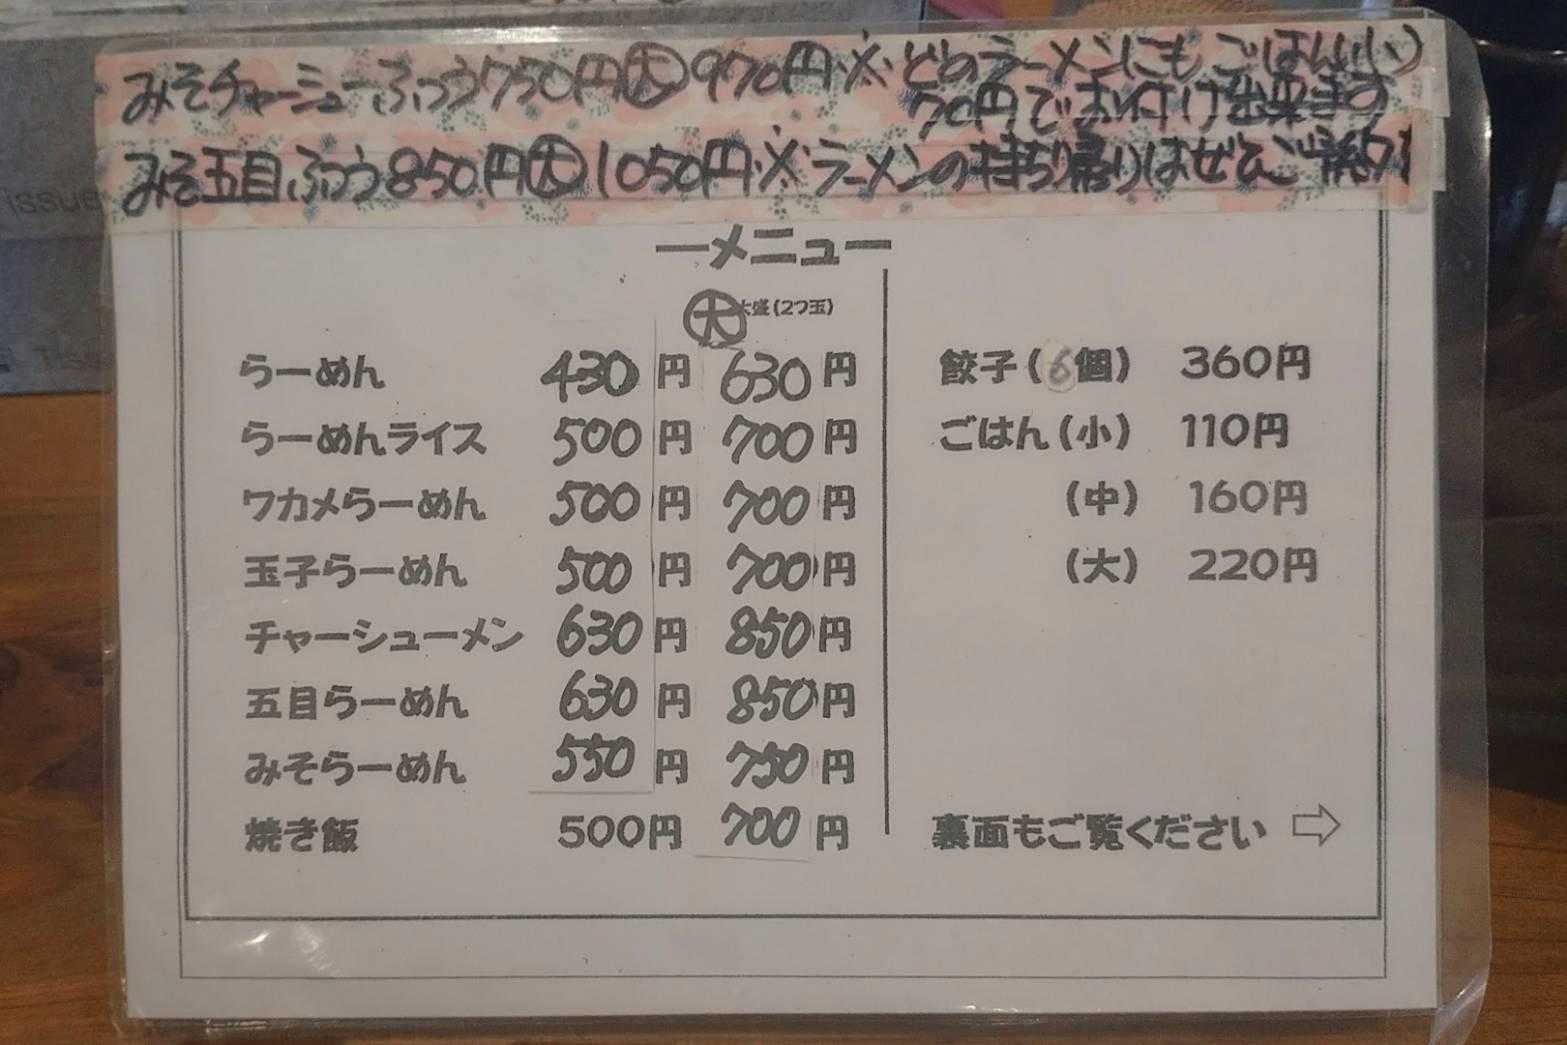 みそチャーシューふつう750円㊅970円※どのラーメンにもごはん(小)
70円でお付け出来ます
みそ五目ふつう850円㊅1050円※ラーメンの持ち帰りはぜひご予約
issue
ーメニューー
㊅大盛(2つ玉)
らーめん 430円 630円
らーめんライス 500円 700円
ワカメらーめん 500円 700円
玉子らーめん 500円 700円
チャーシューメン 630円 850円
五目らーめん 630円 850円
みそらーめん 550円 750円
焼き飯 500円 700円
餃子(6個) 360円
ごはん(小) 110円
(中) 160円
(大) 220円
裏面もご覧ください ⇨